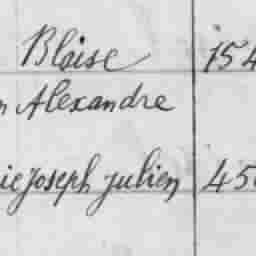 Blaise 154
n Alexandre
ie Joseph julien 456